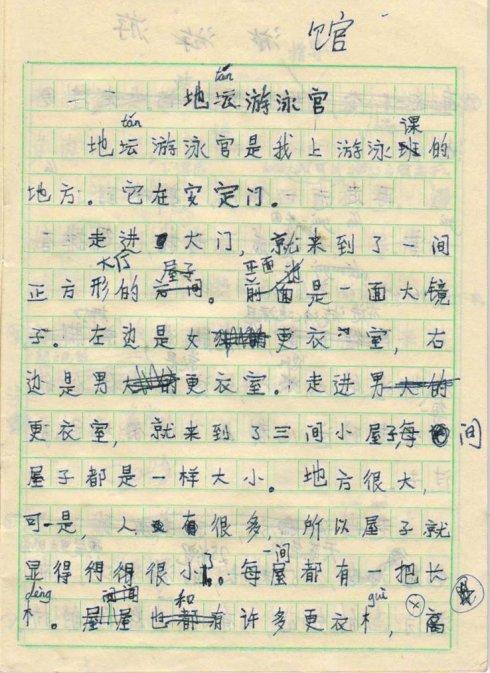 馆
tán
地坛游泳宫
tán 课
地坛游泳宫是我上游泳班的
地方。它在安定门。
走进大门，就来到了一间
大厅 屋子 正面 边
正方形的房间。前面是一面大镜
子。左边是女更衣室，右
边是男更衣室。走进男
更衣室，就来到了三间小屋子每间
屋子都是一样大小。地方很大，
可是，人有很多所以屋子就
一间 了
显得得得很小。每屋都有一把长
dèng 和 guì
木。屋也都有许多更衣木，离